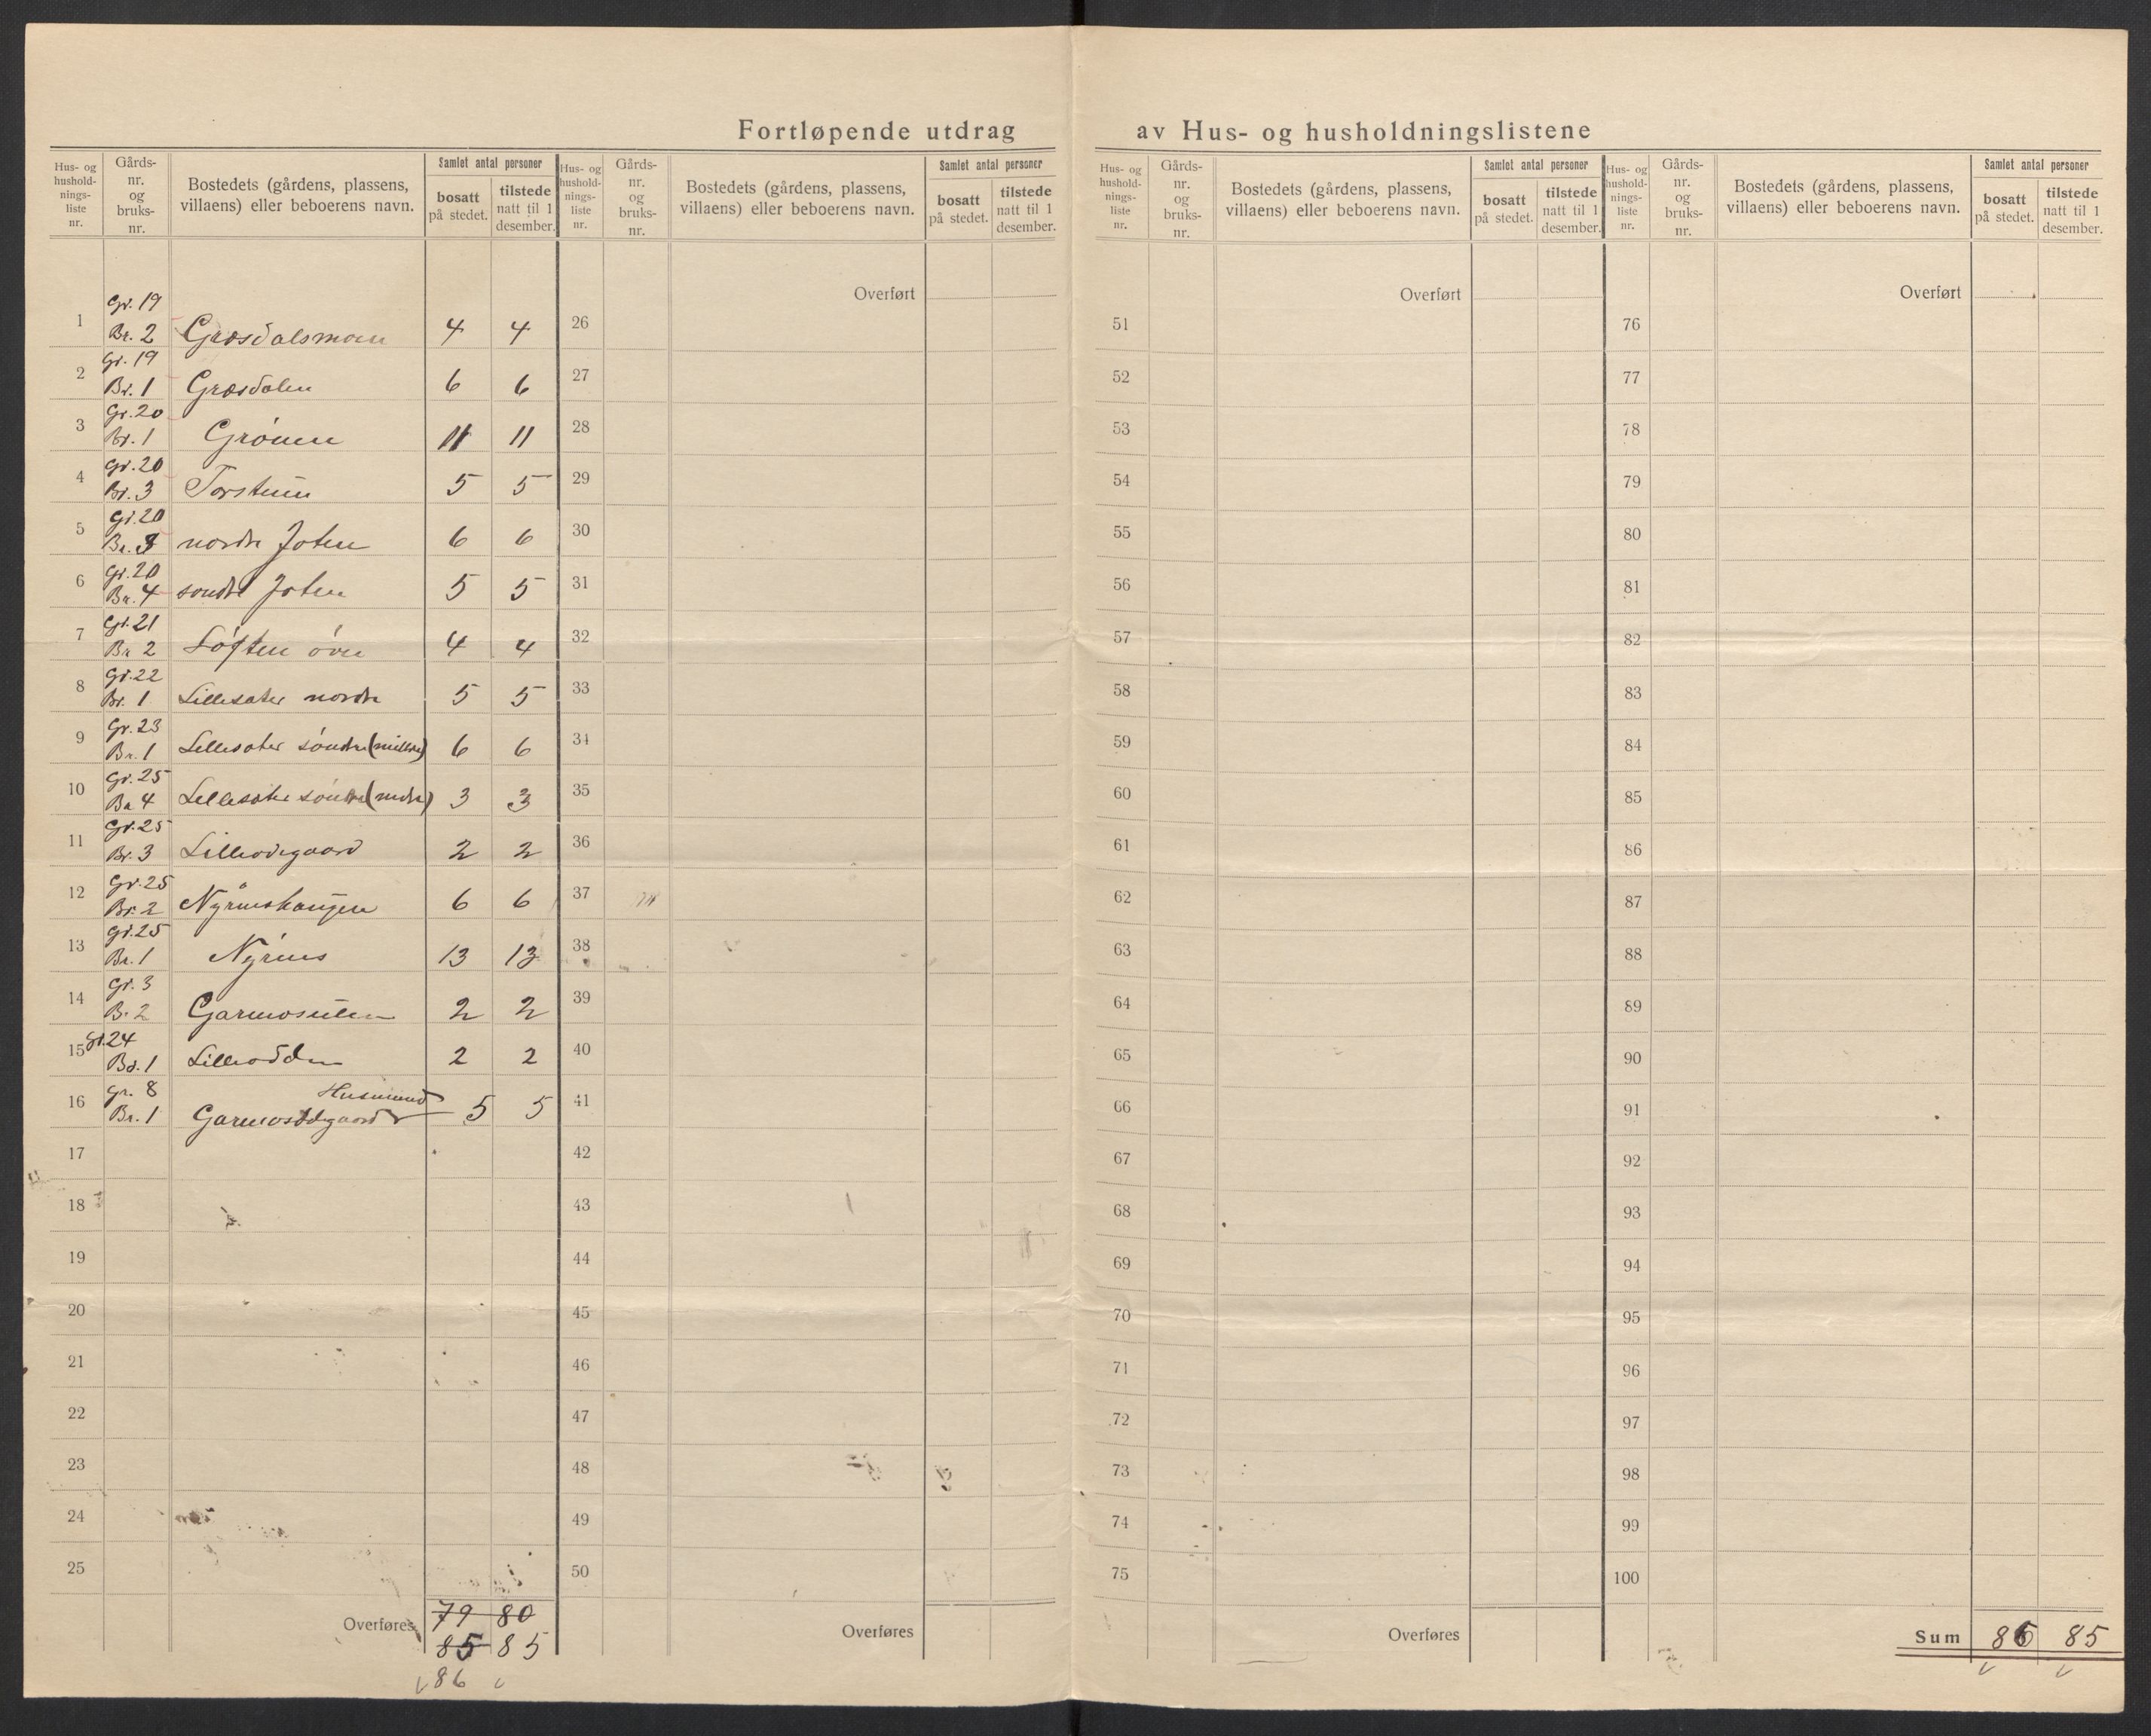 Fortløpende utdrag av Hus- og husholdningslistene
Hus- og
hushold-
nings-
liste
nr.
Gårds-
nr.
og
bruks-
nr.
Bostedets (gårdens, plassens,
villaens) eller beboerens navn.
Samlet antal personer
bosatt
på stedet.
tilstede
natt til 1
desember.
Hus- og
hushold-
nings-
liste
nr.
Gårds-
nr.
og
bruks-
nr.
Bostedets (gårdens, plassens,
villaens) eller beboerens navn.
Samlet antal personer
bosatt
på stedet.
tilstede
natt til 1
desember.
Hus- og
hushold-
nings-
liste
nr.
Gårds-
nr.
og
bruks-
nr.
Bostedets (gårdens, plassens,
villaens) eller beboerens navn.
Samlet antal personer
bosatt
på stedet.
tilstede
natt til 1
desember.
Hus- og
hushold-
nings-
liste
nr.
Gårds-
nr.
og
bruks-
nr.
Bostedets (gårdens, plassens,
villaens) eller beboerens navn.
Samlet antal personer
bosatt
på stedet.
tilstede
natt til 1
desember.
Gr. 19
1 Br. 2 Græsdalsmoen 4 4
Gr. 19
2 Br. 1 Græsdalen 6 6
Gr. 20
3 Br. 1 Grönen 11 11
Gr. 20
4 Br. 3 Torsteien 5 5
Gr. 20
5 Br. nordre Joten 6 6
Gr. 20
6 Br. 4 søndre Joten 5 5
Gr. 21
7 Br 2 Löften övre 4 4
Gr. 22
8 Br. 1 Lillesæter nordre 5 5
Gr. 23
9 Br. 1 Lillesæter söndre (midtre) 6 6
Gr. 25
10 Br 4 Lillesæter söndre (nedre) 3 3
Gr. 25
11 Br. 3 Lilleødegaard 2 2
Gr. 25
12 Br. 2 Nyrnushaugen 6 6
Gr. 25
13 Br. 1 Nyrnus 13 13
Gr. 3
14 Br 2 Garmostuen 2 2
Gr. 24
15 Br. 1 Lilleodden 2 2
Gr. 8 Husmand
16 Br. 1 Garmosødegaard 5 5
17
18
19
20
21
22
23
24
25
Overføres 79 80
85 85
86
Overført
26
27
28
29
30
31
32
33
34
35
36
37
38
39
40
41
42
43
44
45
46
47
48
49
50
Overføres
Overført
51
52
53
54
55
56
57
58
59
60
61
62
63
64
65
66
67
68
69
70
71
72
73
74
75
Overføres
Overført
76
77
78
79
80
81
82
83
84
85
86
87
88
89
90
91
92
93
94
95
96
97
98
99
100
Sum 86 85